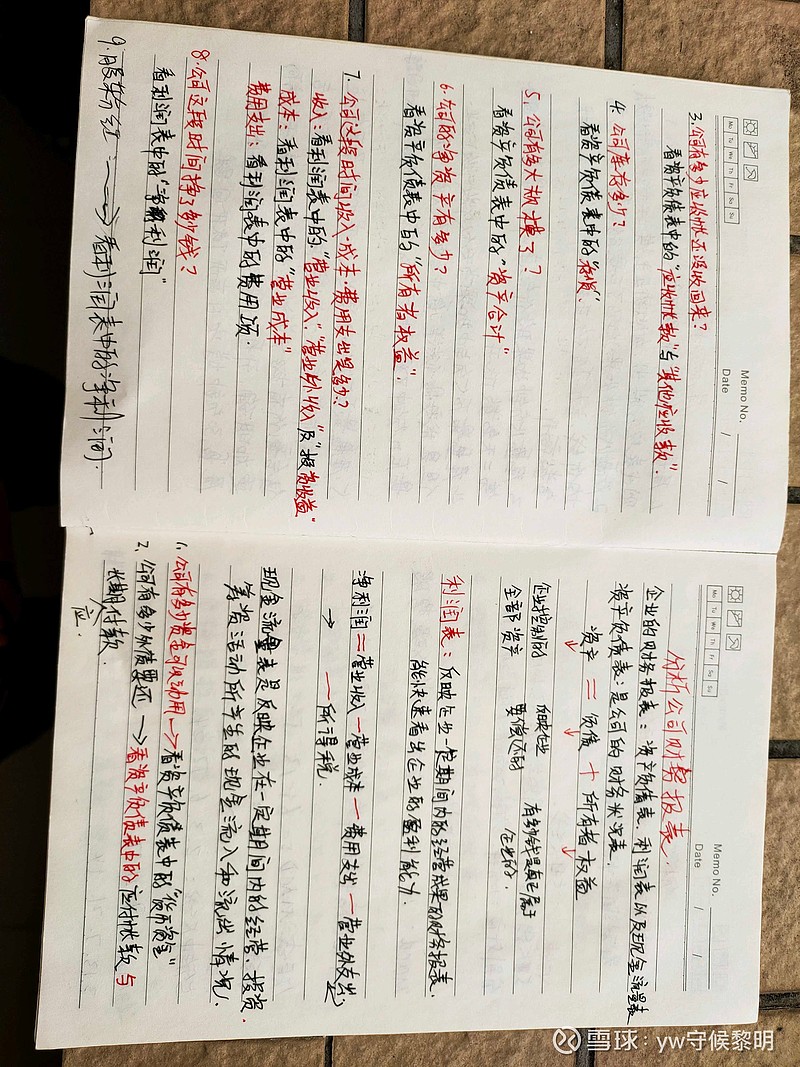 Memo No.
Date / /
Mo Tu We Th Fr Sa Su
分析公司财务报表.
企业的财务报表：资产负债表、利润表以及现金流量表
资产负债表：是公司的财务状况表.
资产 = 负债 + 所有者权益
企业控制的 反映企业 有多少钱是真正属于
全部资产 要偿还的 企业的.
利润表：反映企业一定期间内的经营成果的财务报表.
能快速看出企业的盈利能力.
净利润=营业收入-营业成本-费用支出-营业外支出
→ -所得税.
现金流量表是反映企业在一定期间内的经营、投资、
筹资活动所产生的现金流入和流出情况.
1. 公司有多少资金可供动用→看资产负债表中的"货币资金"
2. 公司有多少外债要还→看资产负债表中的应付帐款与
长期应付款.
Memo No.
Date / /
Mo Tu We Th Fr Sa Su
3. 公司有多少应收帐还没收回来？
看资产负债表中的"应收帐款"与"其他应收款".
4. 公司库存多少？
看资产负债表中的"存货".
5. 公司有多大规模了？
看资产负债表中的"资产合计"
6. 公司的净资产有多少？
看资产负债表中的"所有者权益".
7. 公司这段时间收入.成本.费用支出是多少？
收入：看利润表中的."营业收入""营业外收入"及"投资收益"
成本：看利润表中的"营业成本"
费用支出：看利润表中的费用项.
8. 公司这段时间挣了多少钱？
看利润表中的"净利润"
9. 股票分红——→看利润表中的净利润.
雪球：yw守候黎明